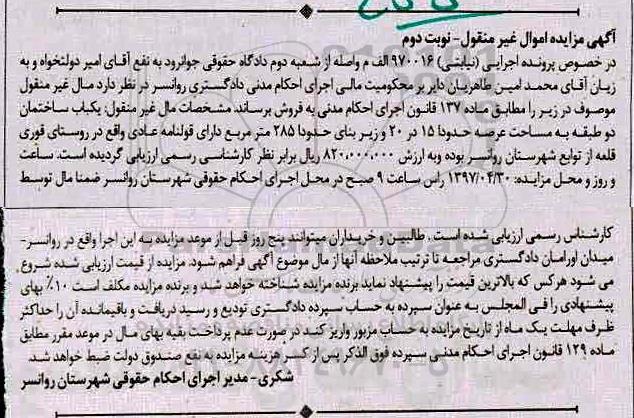 آگهی مزایده اموال غیر منقول - نوبت دوم
در خصوص پرونده اجرایی (نیابتی) ۹۷۰۰۱۶ الف م واصله از شعبه دوم دادگاه حقوقی جوانرود به نفع آقای امیر دولتخواه و به
زیان آقای محمد امین طاهریان دایر بر محکومیت مالی اجرای احکام مدنی دادگستری روانسر در نظر دارد مال غیر منقول
موصوف در زیر را مطابق ماده ۱۳۷ قانون اجرای احکام مدنی به فروش برساند. مشخصات مال غیر منقول: یکباب ساختمان
دو طبقه به مساحت عرصه حدودا ۱۵ در ۲۰ و زیر بنای حدودا ۲۸۵ متر مربع دارای قولنامه عادی واقع در روستای قوری
قلعه از توابع شهرستان روانسر بوده وبه ارزش ۸۲۰,۰۰۰,۰۰۰ ریال برابر نظر کارشناسی رسمی ارزیابی گردیده است. ساعت
و روز و محل مزایده: ۱۳۹۷/۰۴/۳۰ راس ساعت ۹ صبح در محل اجرای احکام حقوقی شهرستان روانسر ضمنا مال توسط
کارشناس رسمی ارزیابی شده است. طالبین و خریداران میتوانند پنج روز قبل از موعد مزایده به این اجرا واقع در روانسر-
میدان اورامان دادگستری مراجعه تا ترتیب ملاحظه آنها از مال موضوع آگهی فراهم شود. مزایده از قیمت ارزیابی شده شروع
می شود هرکس که بالاترین قیمت را پیشنهاد نماید برنده مزایده شناخته خواهد شد و برنده مزایده مکلف است ۱۰٪ بهای
پیشنهادی را فی المجلس به عنوان سپرده به حساب سپرده دادگستری تودیع و رسید دریافت و باقیمانده آن را حداکثر
ظرف مهلت یک ماه از تاریخ مزایده به حساب مزبور واریز کند در صورت عدم پرداخت بقیه بهای مال در موعد مقرر مطابق
ماده ۱۲۹ قانون اجرای احکام مدنی سپرده فوق الذکر پس از کسر هزینه مزایده به نفع صندوق دولت ضبط خواهد شد
شکری - مدیر اجرای احکام حقوقی شهرستان روانسر